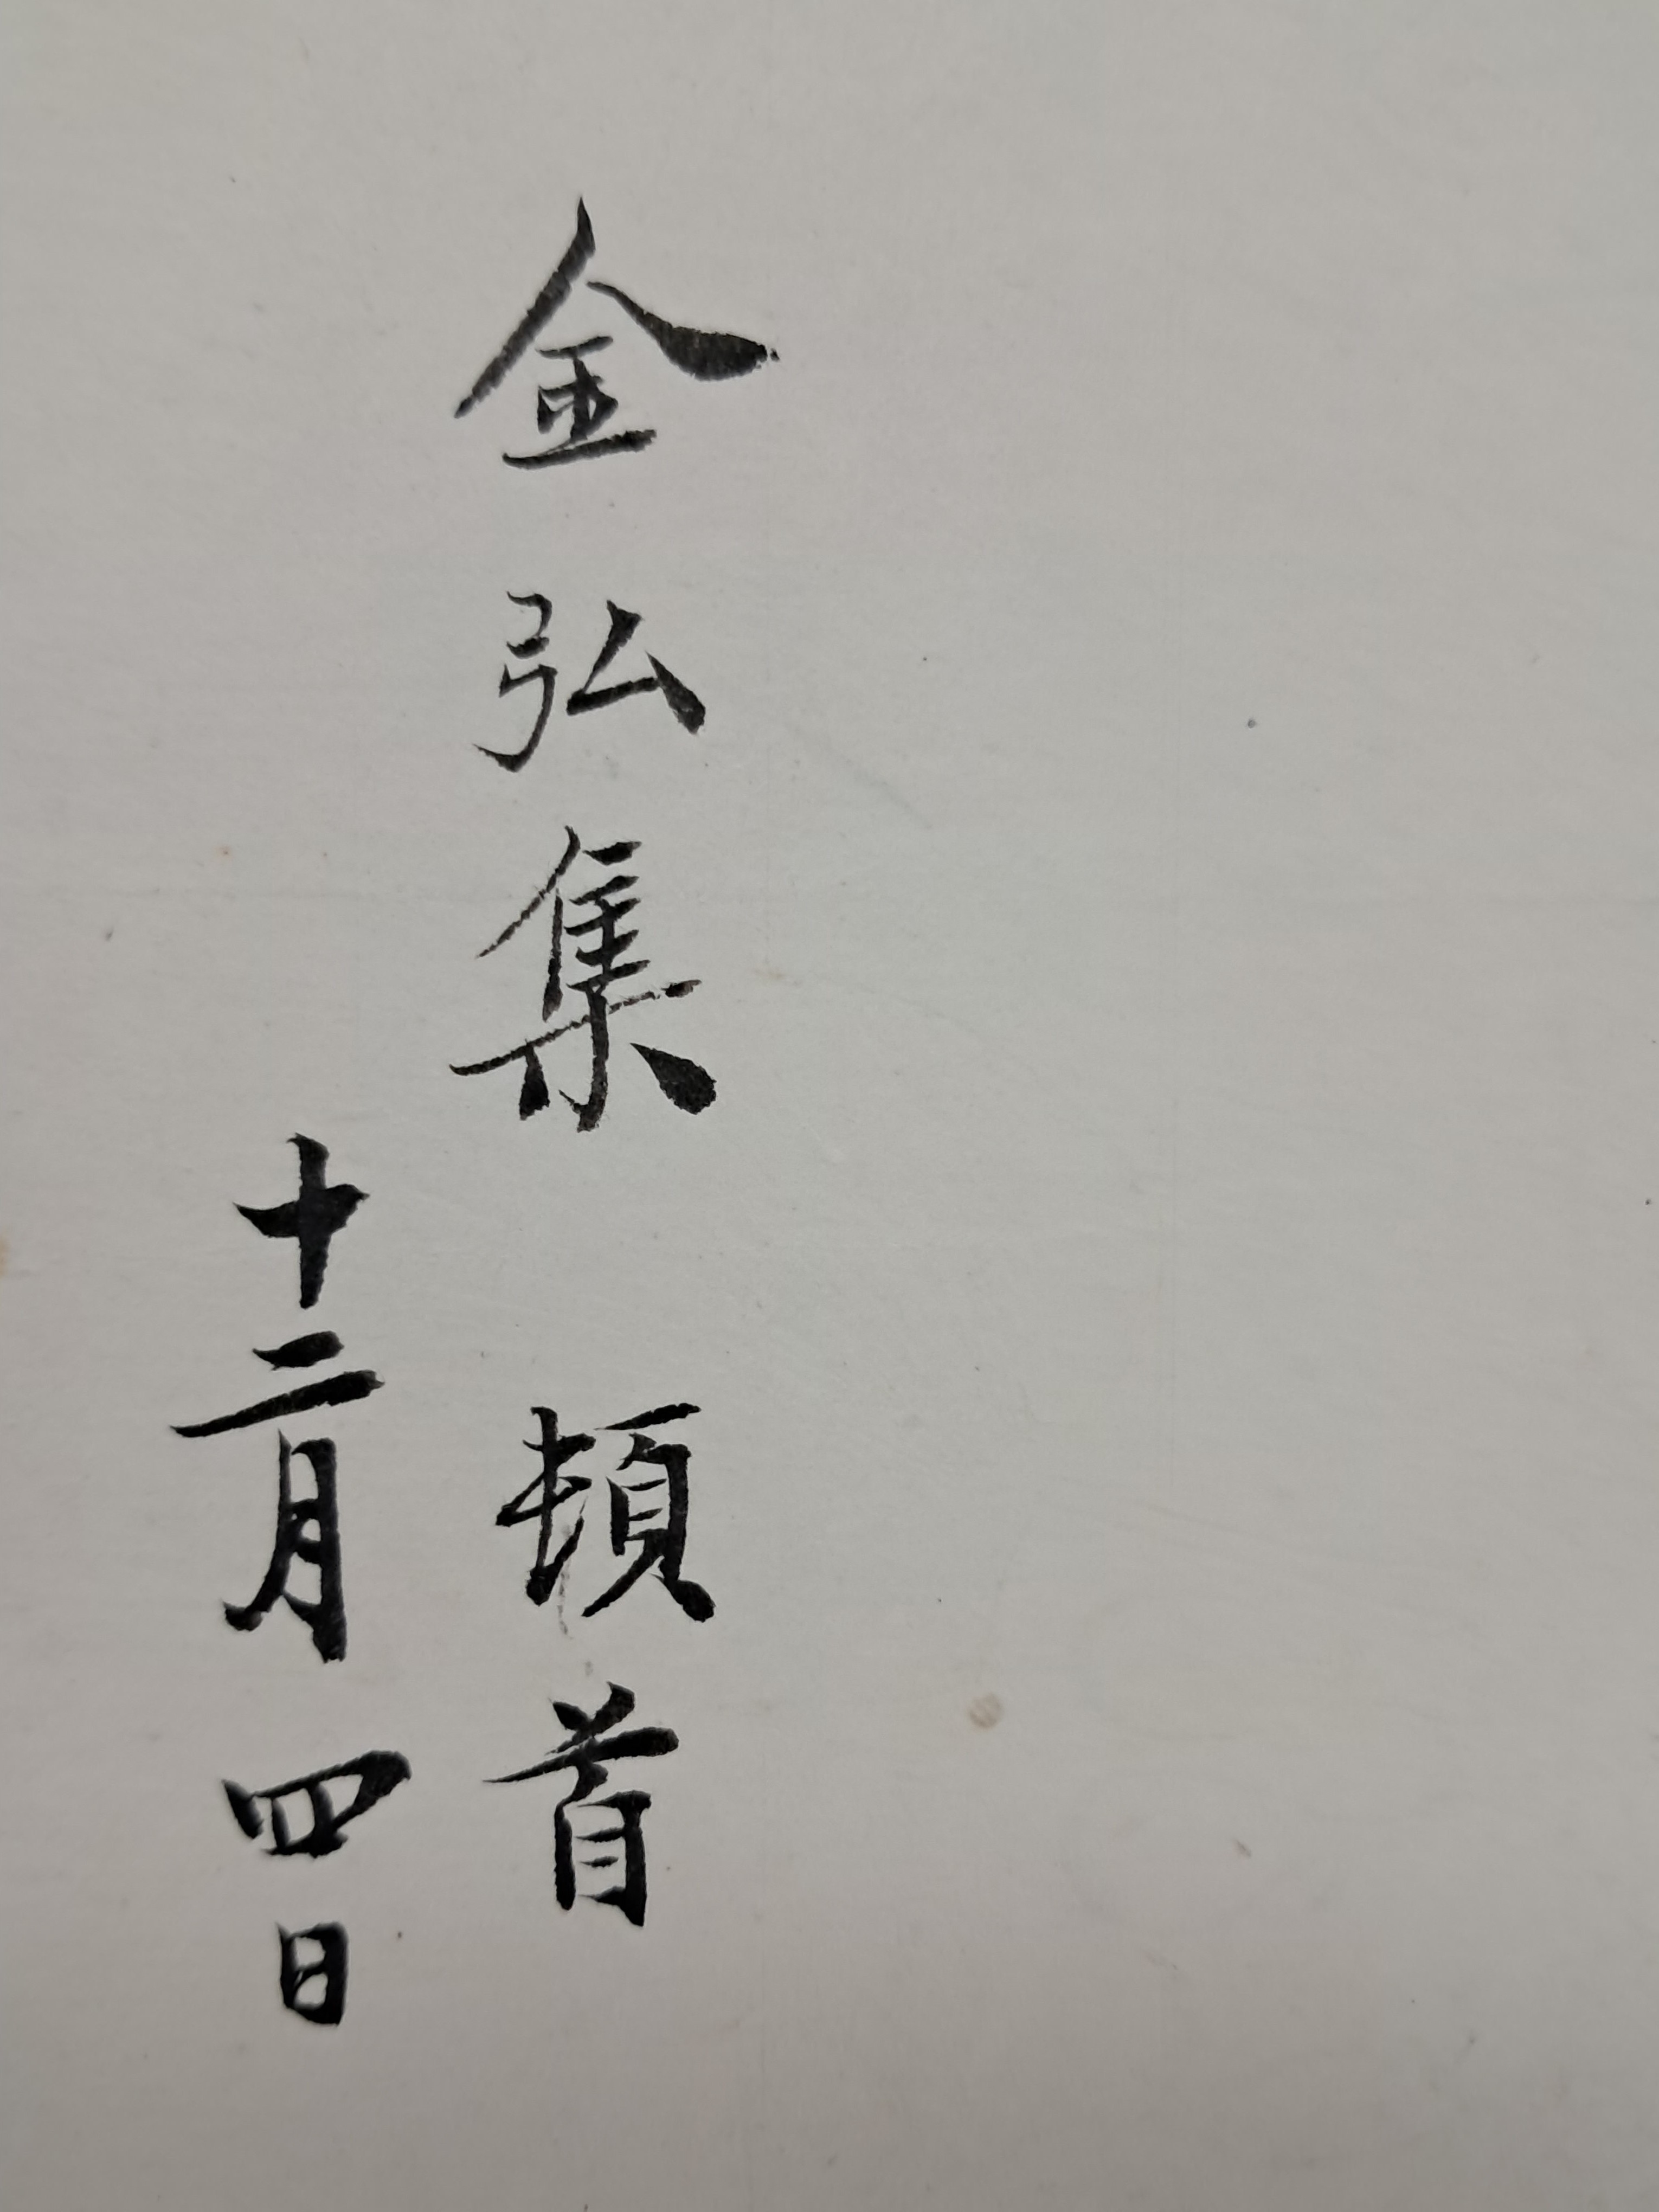 金弘集 頓首
十二月四日